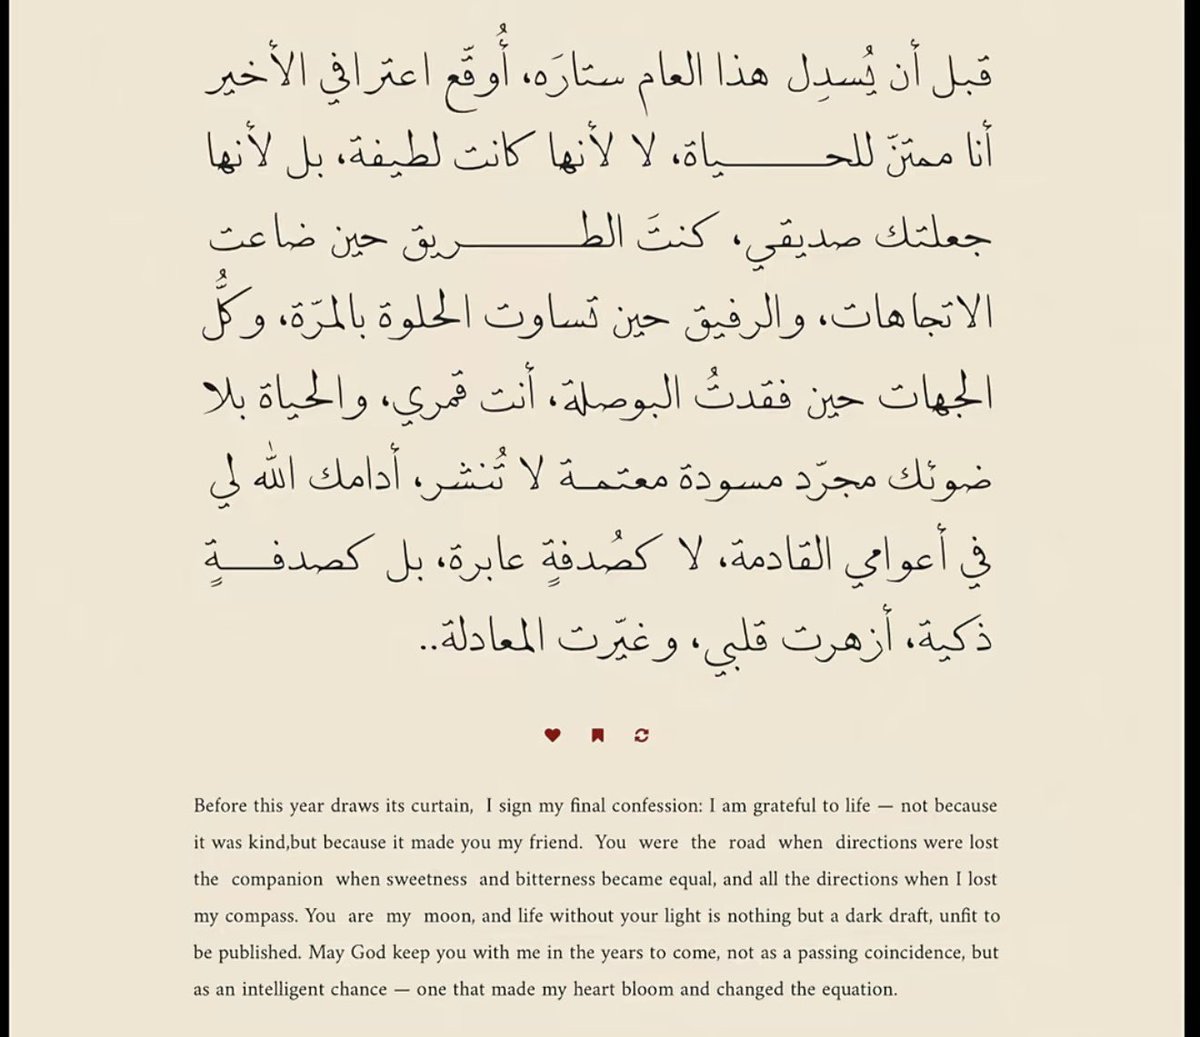 قبل أن يُسدِل هذا العام ستارَه، أُوقّع اعترافي الأخير
أنا ممتنّ للحـــــــياة، لا لأنها كانت لطيفة، بل لأنها
جعلتك صديقي، كنتَ الطـــــــريق حين ضاعت
الاتجاهات، والرفيق حين تساوت الحلوة بالمرّة، وكُلُّ
الجهات حين فقدتُ البوصلة، أنت قمري، والحياة بلا
ضوئك مجرّد مسودة معتمـة لا تُنشر، أدامك الله لي
في أعوامي القادمة، لا كصُدفةٍ عابرة، بل كصدفـــةٍ
ذكية، أزهرت قلبي، وغيّرت المعادلة..
Before this year draws its curtain, I sign my final confession: I am grateful to life — not because
it was kind,but because it made you my friend. You were the road when directions were lost
the companion when sweetness and bitterness became equal, and all the directions when I lost
my compass. You are my moon, and life without your light is nothing but a dark draft, unfit to
be published. May God keep you with me in the years to come, not as a passing coincidence, but
as an intelligent chance — one that made my heart bloom and changed the equation.